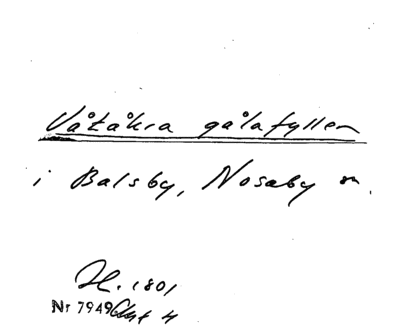 Våtåkra gålafyllen
i Balsby, Nosaby sn.
H. 1801
Nr 7949 4